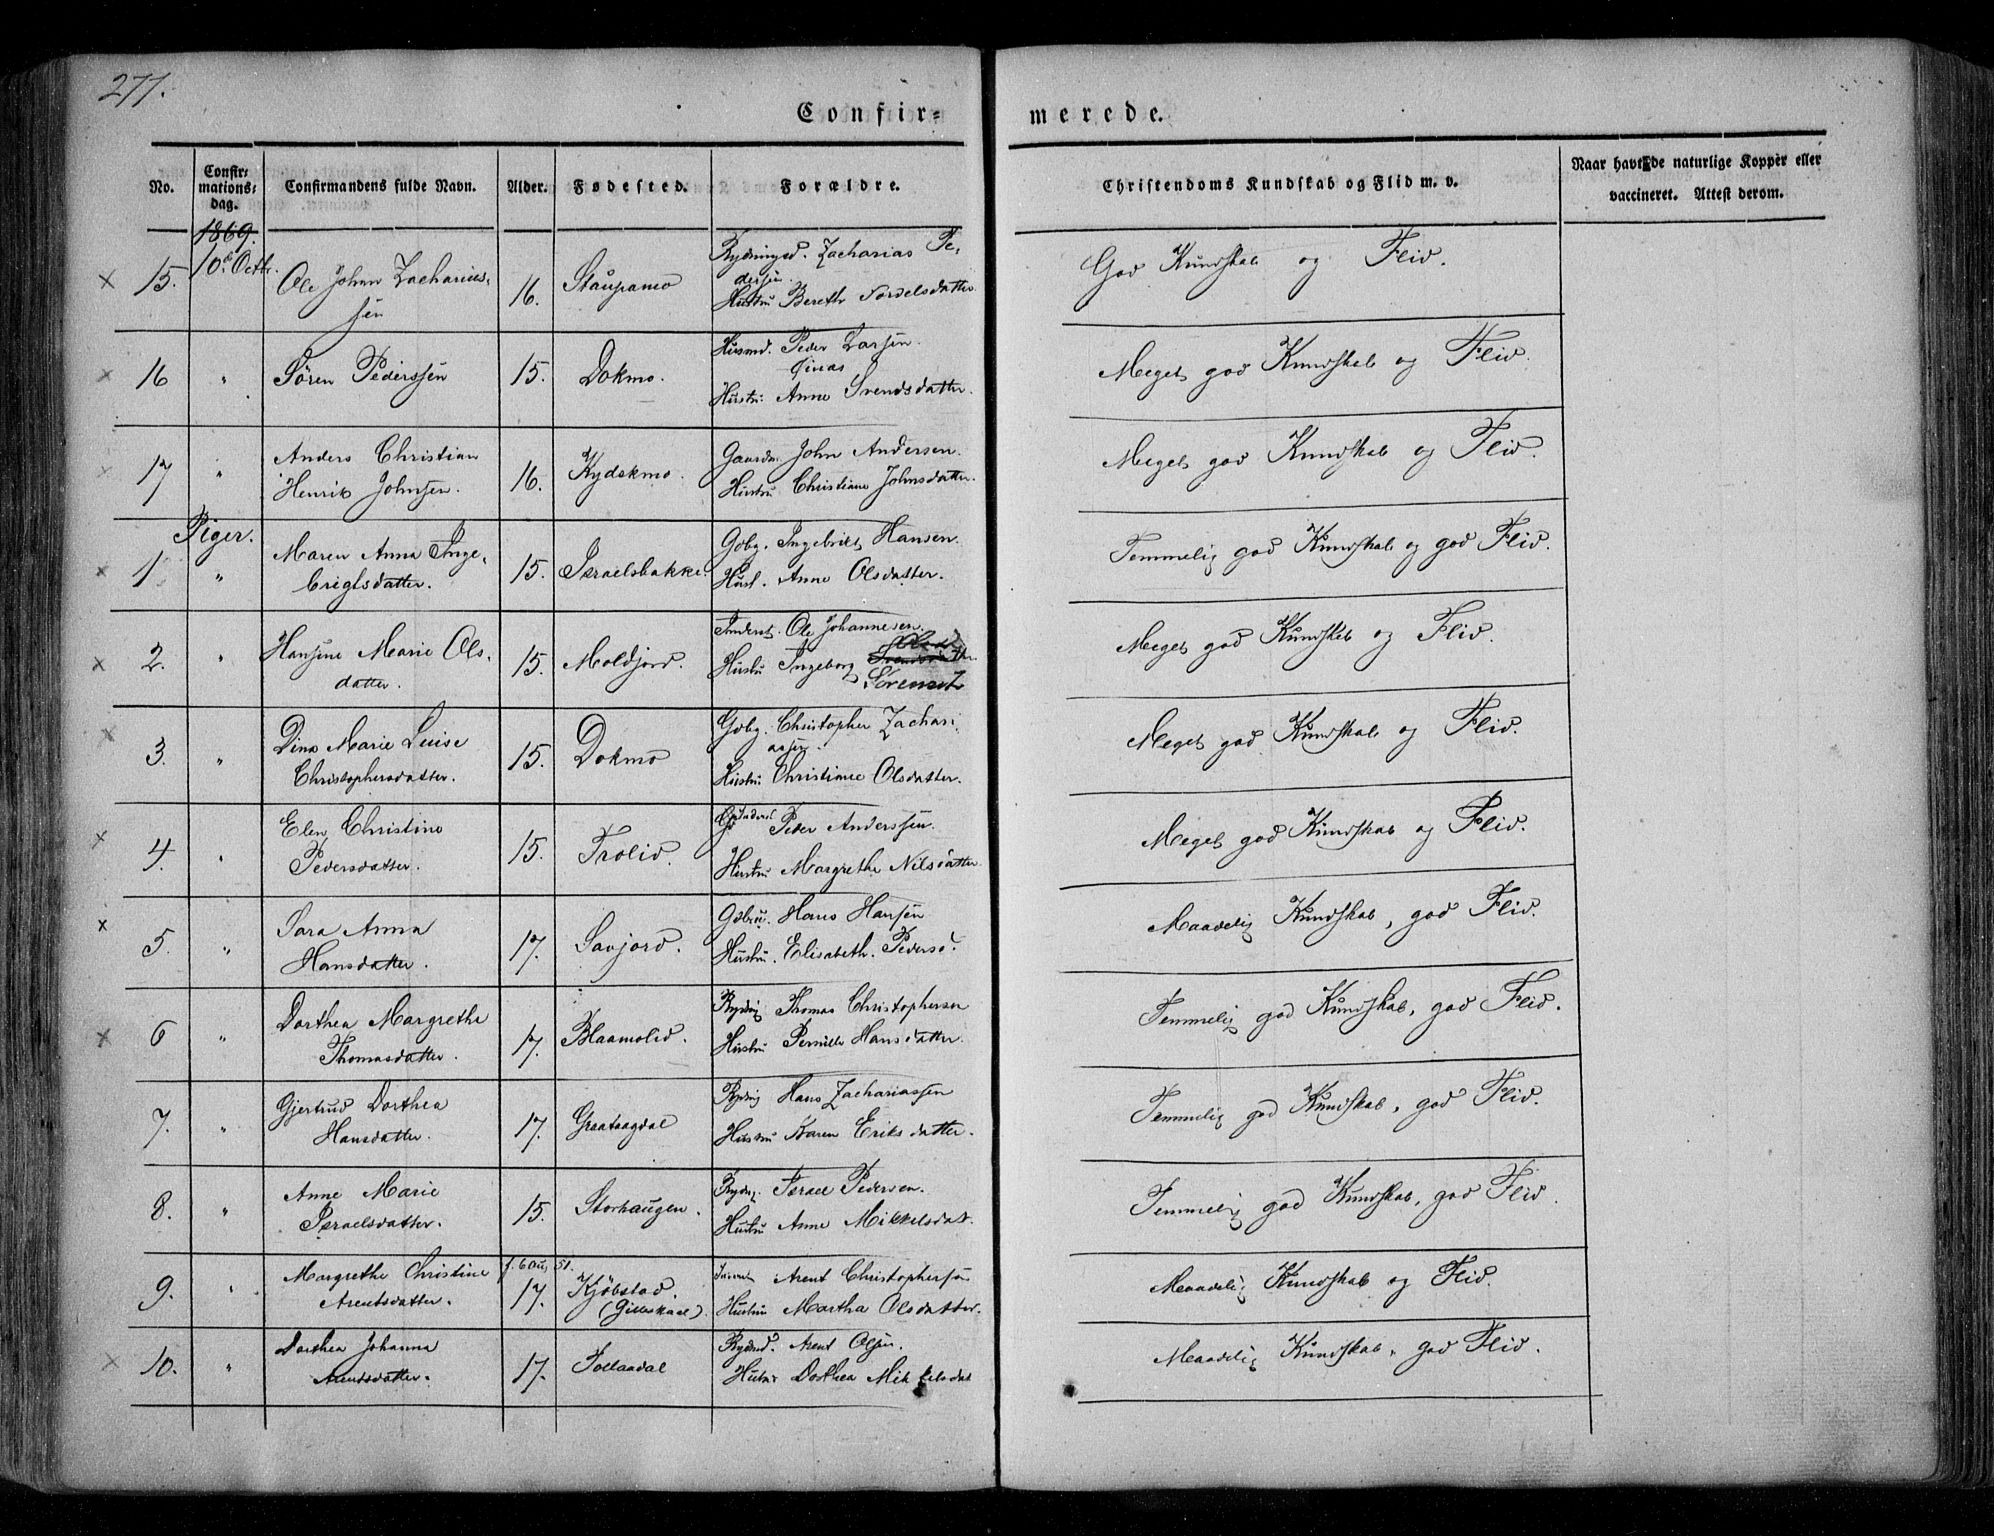 277.
Confir=
merede.
No.
Confir=
mations=
dag.
Confirmandens fulde Navn.
Alder.
Fødested.
Forældre.
Christendoms Kundskab og Flid m. v.
Naar havt de naturlige Kopper eller
vaccineret. Attest derom.
1869.
15. 10de Octbr. Ole Johan Zacharias- 16. Staupamo Rydningsd. Zacharias Pe- God Kundskab og Flid.
sen
dersen
Hustru Bereth Fordelsdatter
16 " Sören Pederssen 15. Dokmo. Husmd. Peder Larsen Meget god Kundskab og Flid.
Hustru Anne Svendsdatter.
17 " Anders Christian 16. Kydskmo. Gaardm. John Andersen. Meget god Kundskab og Flid.
Henrik Johnsen. Hustru Christiane Johnsdatter.
Piger.
1 " Maren Anna Inge- 15. Israelsbakke. Gbbg. Ingebrikt Hansen. Temmelig god Kundskab og god Flid.
brigtsdatter. Hust. Anne Olsdatter.
2. " Hansine Marie Ols- 15. Moldjord. Inderst. Ole Johannesen. Meget god Kundskab og Flid.
datter. Hustru Ingeborg Sörensd
3. " Dina Marie Luise 15. Dokmo Gbbg. Christopher Zachari- Meget god Kundskab og Flid.
assen.
Christophersdatter. Hustru Christiane Olsdatter.
4. " Elen Christine 15. Trolid. Inderst Peder Anderssen. Meget god Kundskab og Flid.
Pedersdatter. Hustru Margrethe Nilsdatter
5. " Sara Anna 17. Savjord. Gdbru. Hans Hansen Maadelig Kundskab, god Flid.
Hansdatter. Hustru. Elisabeth. Pedersd.
6 " Dorthea Margrethe 17. Blaamolid. Rydnig Thomas Christophersen Temmelig god Kundskab, god Flid.
Thomasdatter. Hustru Pernille Hansdatter.
7. " Gjertrud Dorthea 17. Graataagdal Rydnig Hans Zachariassen Temmelig god Kundskab, god Flid.
Hansdatter. Hustru Karen Eriksdatter.
8. " Anne Marie 15. Storhaugen. Rydng. Israel Pedersen. Temmelig god Kundskab, god Flid.
Israelsdatter. Hustru Anne Mikkelsdat.
9. " Margrethe Christine f. 6 Aug 51. 17. Kjöbstad. Arent Christophersen Maadelig Kundskab og Flid.
Arentsdatter. (Gilleskaal). Hustru Martha Olsdatter.
10. " Dorthea Johanna 17. Tollaadal Rydnd. Arent Olsen. Maadelig Kundskab, god Flid.
Arentsdatter. Hustr Dorthea Mikkelsdat